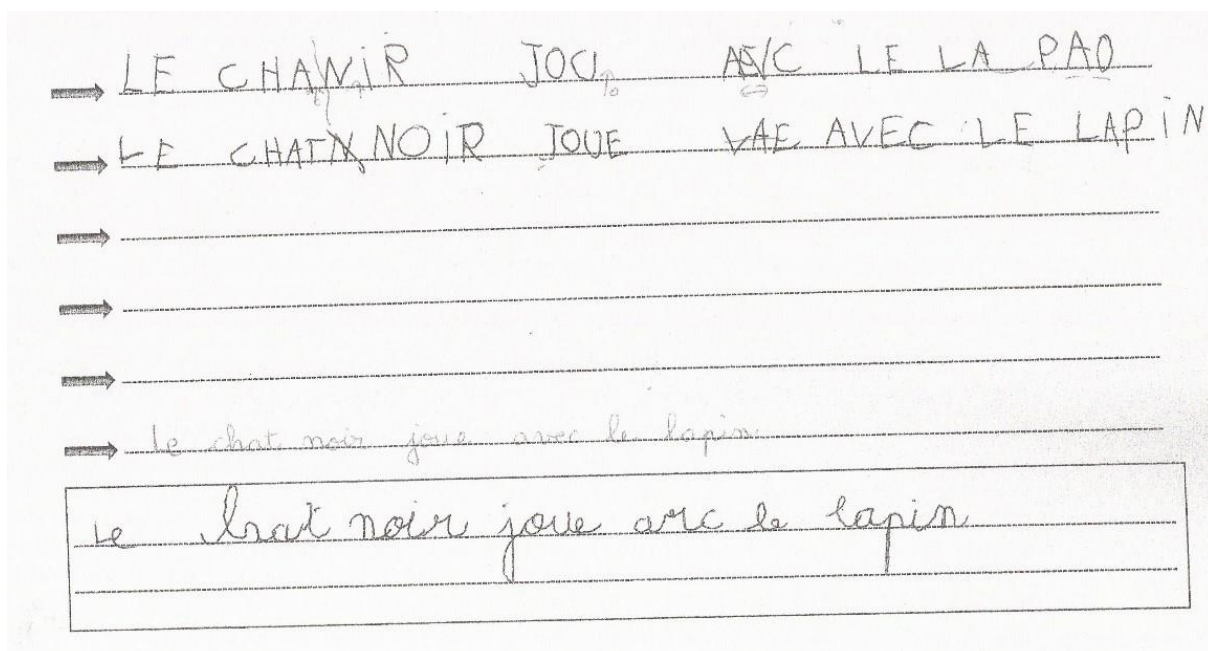 LE CHANIR JOU AEVC LE LA PAO
LE CHAT NOIR JOUE AVEC LE LAPIN
le chat noir joue avec le lapin
Le noir joue avc le lapin